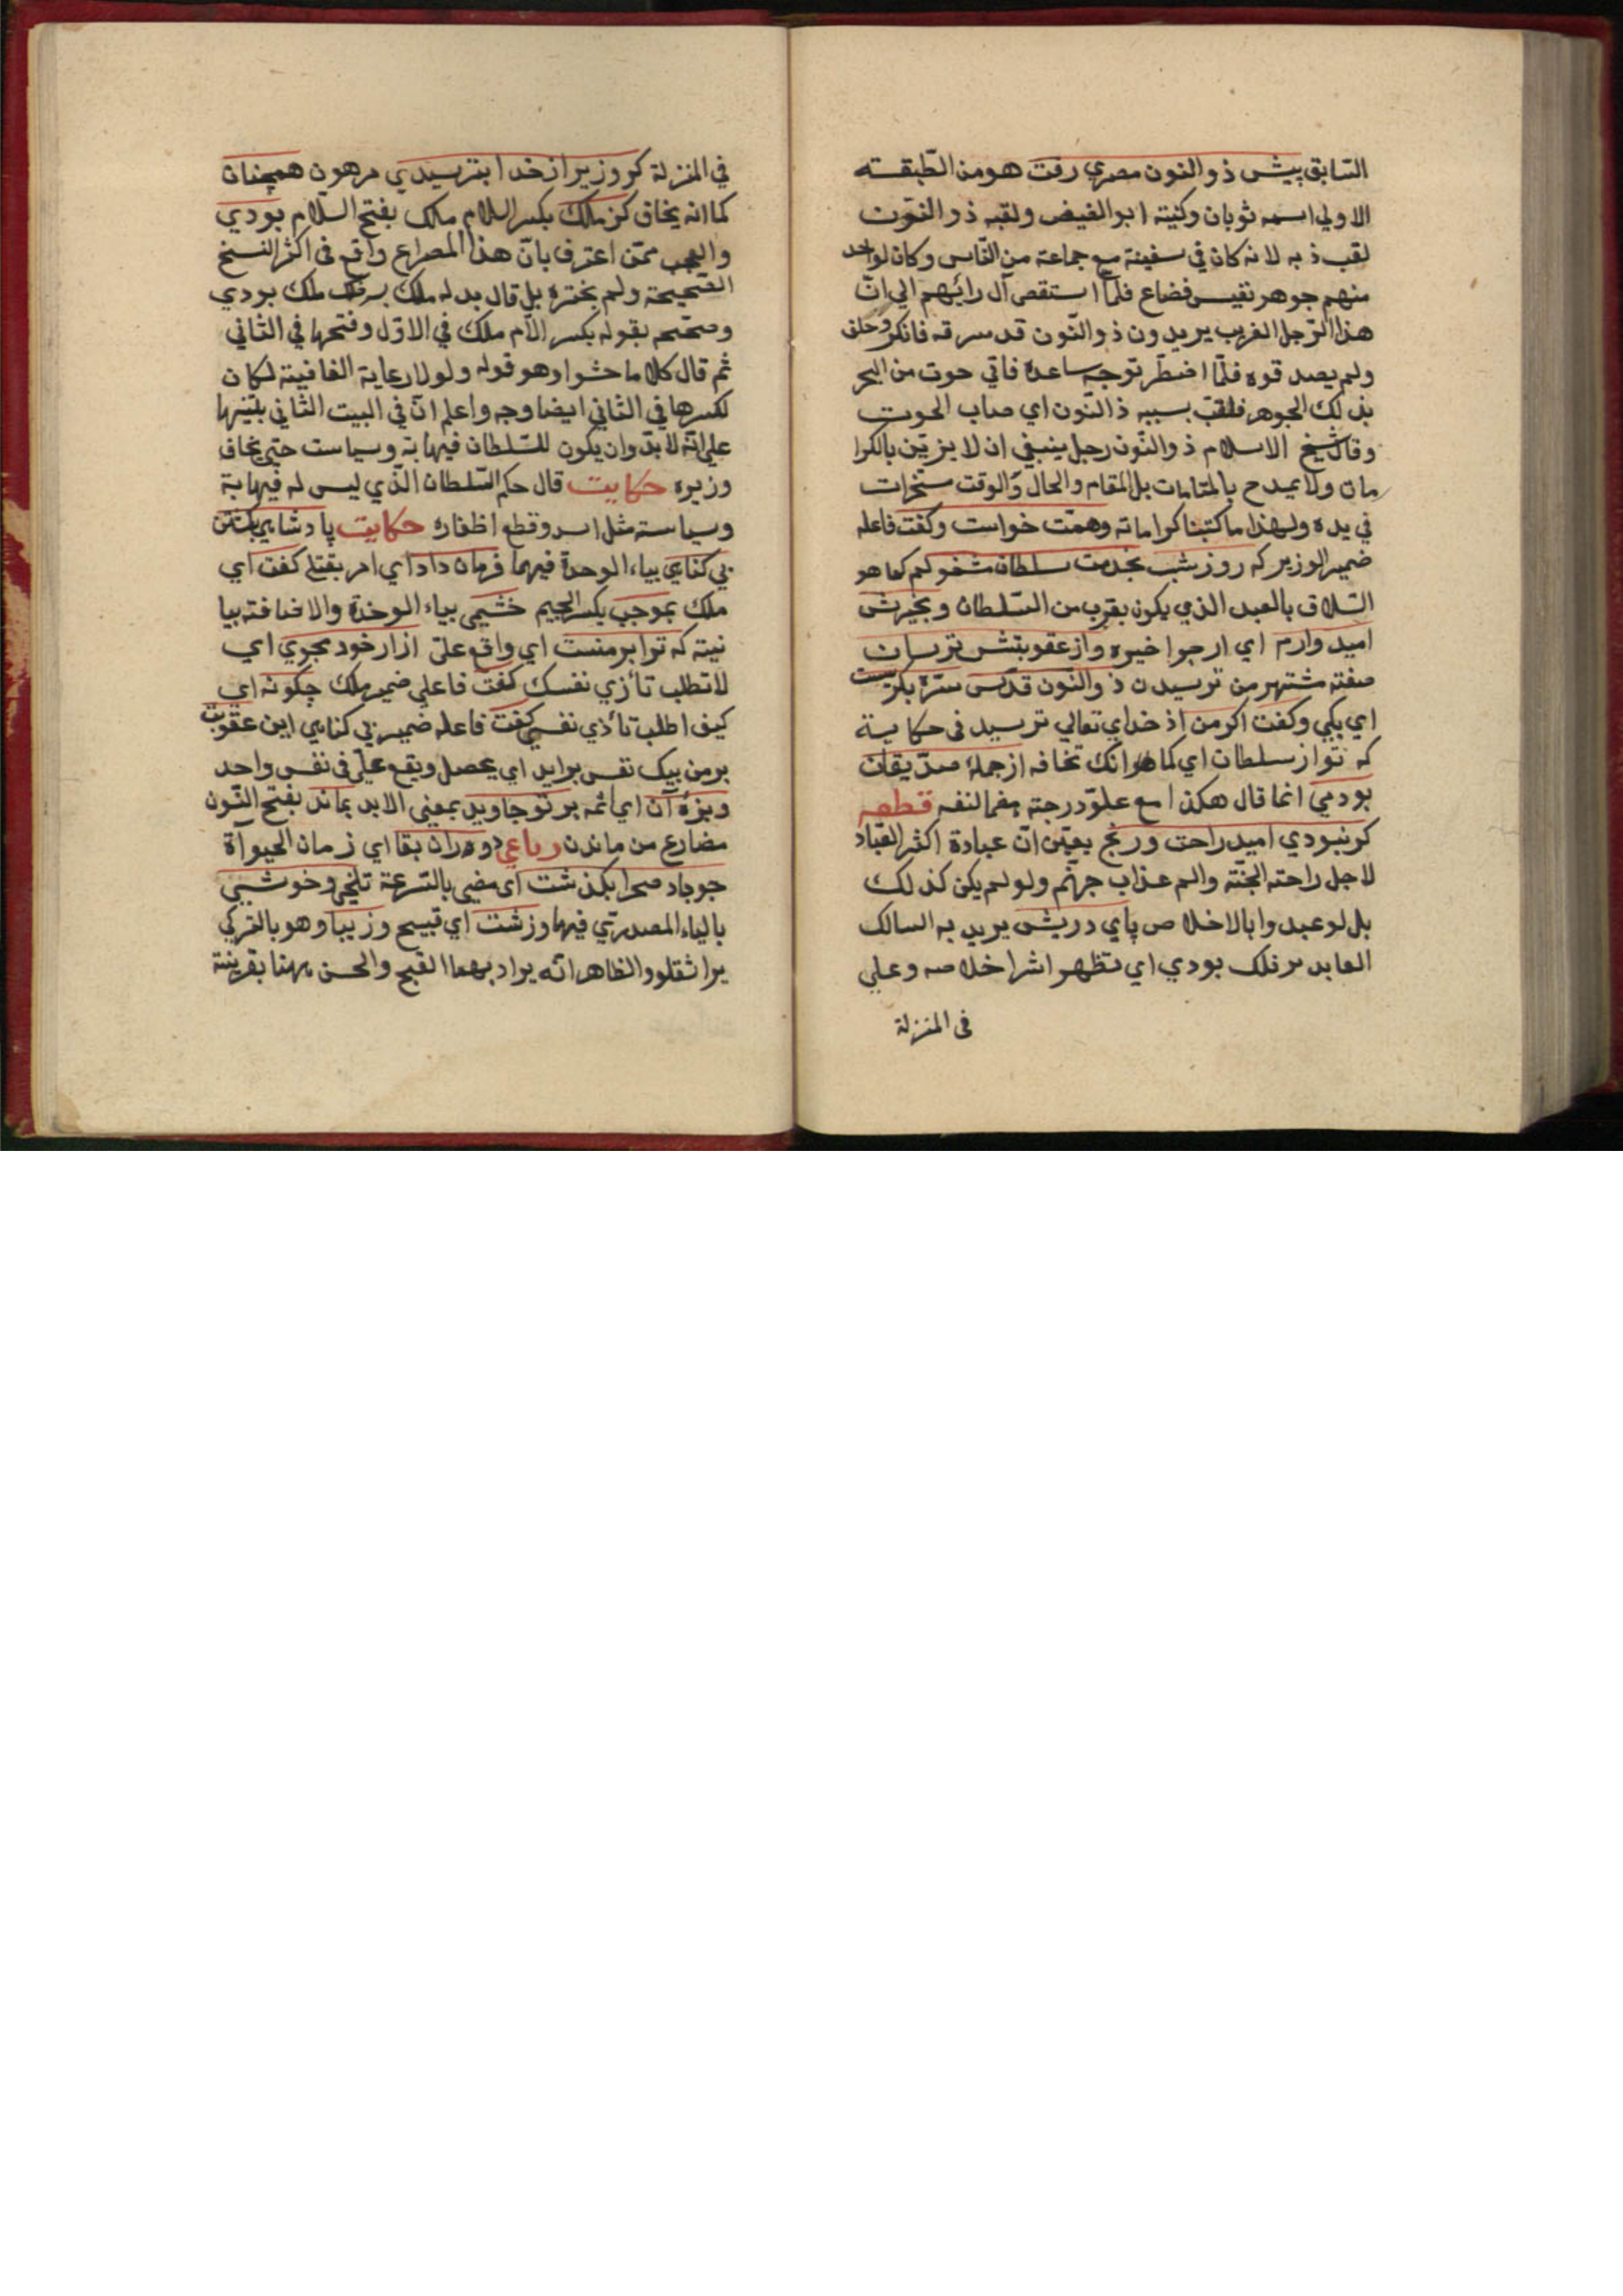 السّابق پیش ذو النون مصري رفت هو من الطّبقته
الاولي اسمه ثوبان وكنيته ابو الفيض ولقبه ذو النّون
لقب ذ به لانه كان في سفينة مع جماعة من النّاس وكان لواحد
منهم جوهر نفيس فضاع فلمّا استقصى آل رائهم الي انّ
هذا الرّجل الغريب يريدون ذو النّون قد سرقه فانكر وحلف
ولم يصدقوه فلمّا اضطرّ توجه ساعدة فاتي حوت من البحر
بذلك الجوهر فلقّب بسببه ذا النّون اي صاب الحوت
وقال شيخ الاسلام ذو النّون رجل ينبغي ان لا يزيّن بالكرا
مات ولا يمدح بالمقامات بل المقام والحال والوقت سخرات
في يده ولهذا ما كتبنا كراماته وهمّت خواست وكفت فاعله
ضمير الوزير كه روز شب بخدمت سلطان مشغولم كما هو
السّلاق بالعبد الذي يكون بقرب من السّلطان وبخيرش
اميد وارم اي ارجوا خيره واز عقوبتش ترسان
صفته مشتهر من ترسيدن ذو النّون قدّس سرّه بكريست
اي بكي وكفت اكر من از خداي تعالي ترسيد في حكاية
كه تو از سلطان اي كما هو انك تخافه از جملهٔ صدّيقان
بودمي انما قال هكذا مع علوّ درجته هضما لنفسه قطعه
كرنبودي اميد راحت ورنج بعين انّ عبادة اكثر العبّاد
لاجل راحته الجنّة والم عذاب جهنّم ولو لم يكن كذلك
بل لو عبدوا بالاخلاص پاي درويش يريد به السالك
العابد بر فلك بودي اي تظهر اشر اخلاصه وعلي
في المنزلة
في المنزلة كر وزير از خدا بترسيدي مرهون همچنان
كما انه يخاف كز ملك بكسر اللام ملك بفتح السّلام بودي
والعجب ممّن اعترف بانّ هذا المصراع واقع في اكثر النسخ
الصّحيحة ولم يختره بل قال بدله ملك بر فلك ملك بودي
وصحّحه بقوله بكسر الّام ملك في الاوّل وفتحها في الثّاني
ثم قال كلاما حشوا وهو قوله ولولا رعاية القافيته لكان
لكسرها في الثاني ايضا وجه واعلم انّ في البيت الثّاني بتنيها
علي انّه لا بدّ وان يكون للسّلطان فيها بة وسياست حتي يخاف
وزيره حكايت قال حكم السّلطان الّذي ليس له فيهابة
وسياسته مثل اسد وقطع اظفاره حكايت پادشاهي بكشتن
بي كناهي بياء الوحدة فيهما فرمان داد اي امر بقتله كفت اي
ملك بموجب بكسر الجيم خشمي بياء الوحدة والاضافته بيا
نيته كه ترا بر منست اي واقع عليّ ازار خود مجوي اي
لا تطلب تأزي نفسك كفت فاعله ضمير ملك چكونه اي
كيف اطلب تاذي نفسي كفت فاعله ضمير بي كناهي اين عقوبت
بر من بيك نفس برايد اي يحصل ويقع عليّ في نفس واحد
وبزهٔ آن اي اثمه بر تو جاويد بمعني الابد بماند بفتح النّون
مضارع من ماندن رباعي دوران بقا اي زمان الحيوآة
چو باد صحرا بكذشت اي مضي بالسّرعة تلخي وخوشي
بالياء المصدرتي فيهما وزشت اي قبيح وزيبا وهو بالتركي
يراشقلو والظاهر انّه يراد بهما القبح والحسن ههنا بقرينة